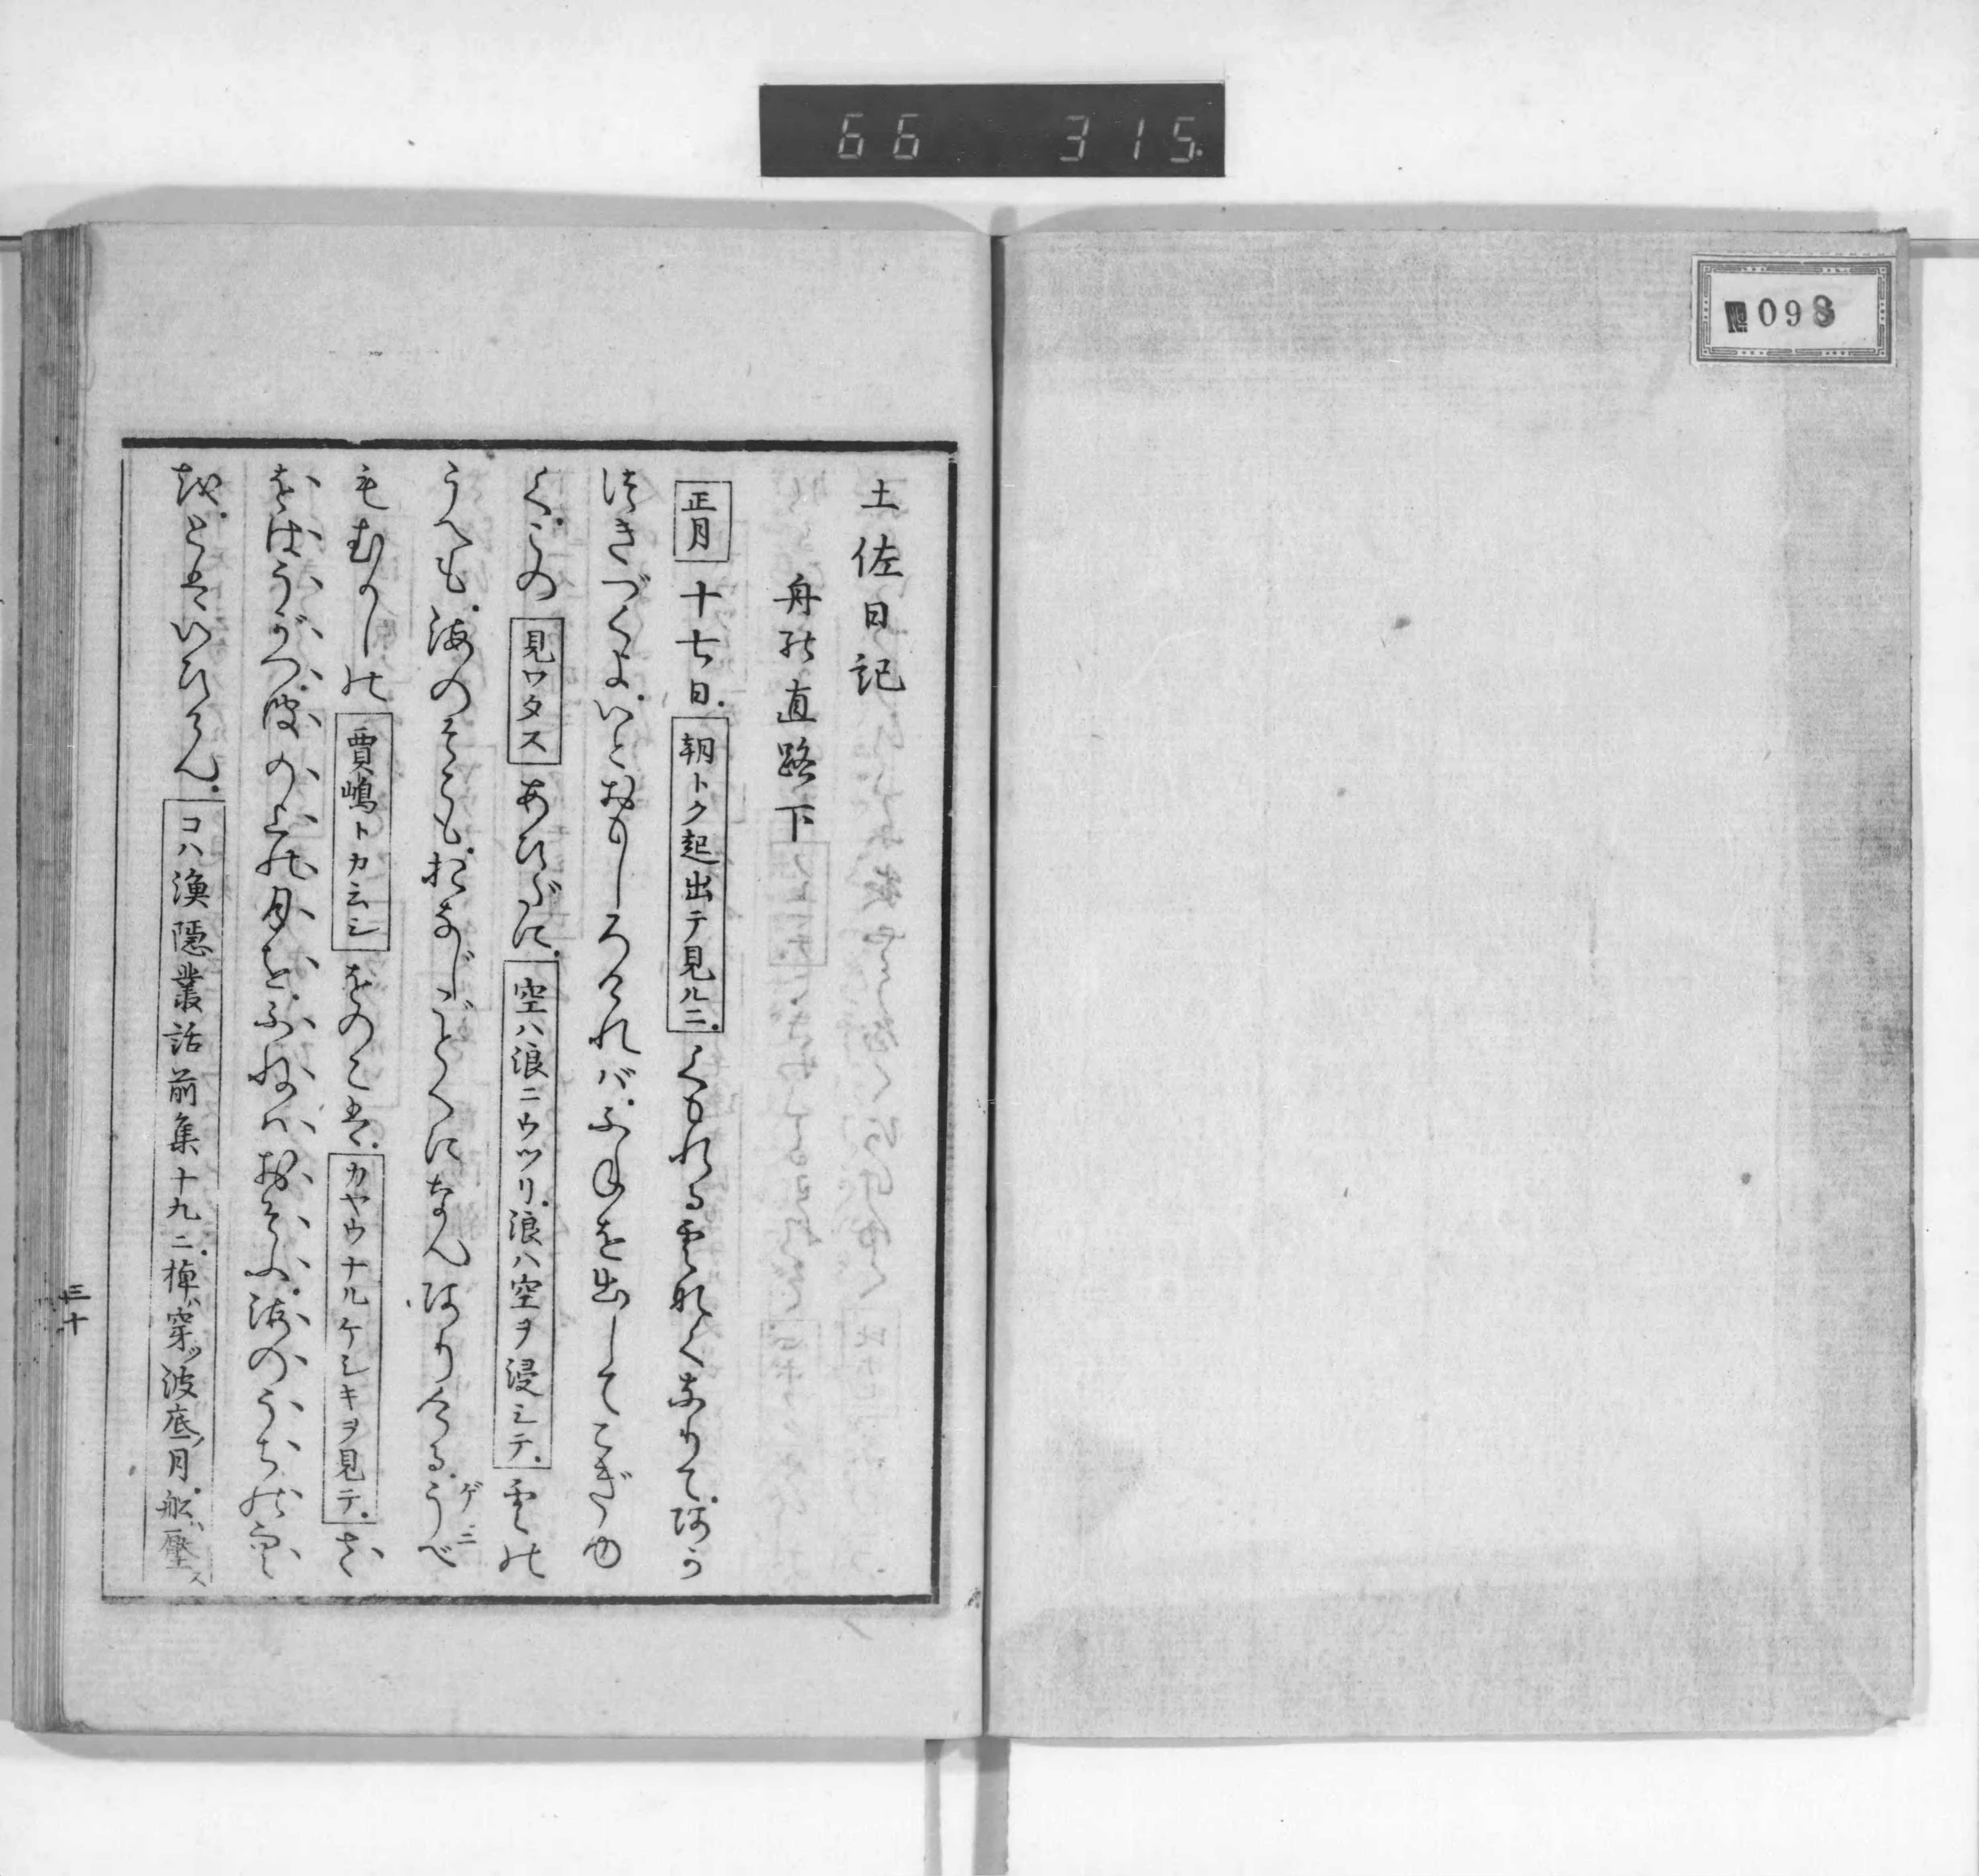 66 315
098
土佐日記
舟の直路下
正月 十七日。朝トク起出テ見ルニ。くもれる雲なくなりて。あか
つきづくよ。いとおもしろければ。ふねを出してこぎゆ
く。この 見ワタス あひだに。空ハ浪ニウツリ。浪ハ空ヲ浸シテ。雲の
うへも。海のそこも。おなじごとくになんありける。うべ ゲニ
もむかしの 賈嶋トカ云シ をのこは。カヤウナルケシキヲ見テ。さ
をはうがつ。波のうへの月を。ふねはおそふ。海のうちの空
を。とはいひけん。コハ漁隠叢話前集十九ニ。棹ハ穿ツ波底ノ月。舩ハ壓ス
三十